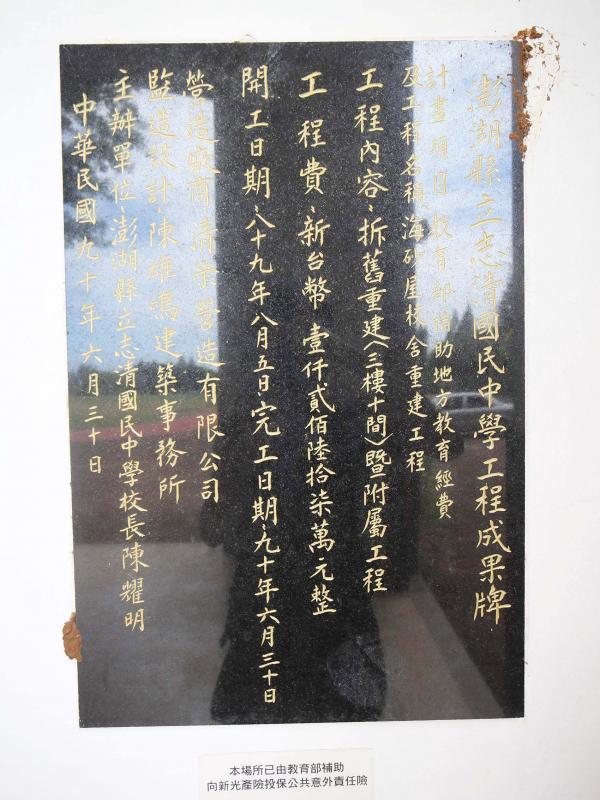 澎湖縣立志清國民中學工程成果牌
計畫項目、教育部補助地方教育經費
及工程名稱、海砂屋校舍重建工程
工程內容、拆舊重建(三樓十間)暨附屬工程
工程費、新台幣壹仟貳佰陸拾柒萬元整
開工日期、八十九年八月五日、完工日期、九十年六月三十日
營造廠商、清榮營造有限公司
監造設計、陳雄鳴建築事務所
主辦單位、澎湖縣立志清國民中學校長陳耀明
中華民國九十年六月三十日
本場所已由教育部補助
向新光產險投保公共意外責任險